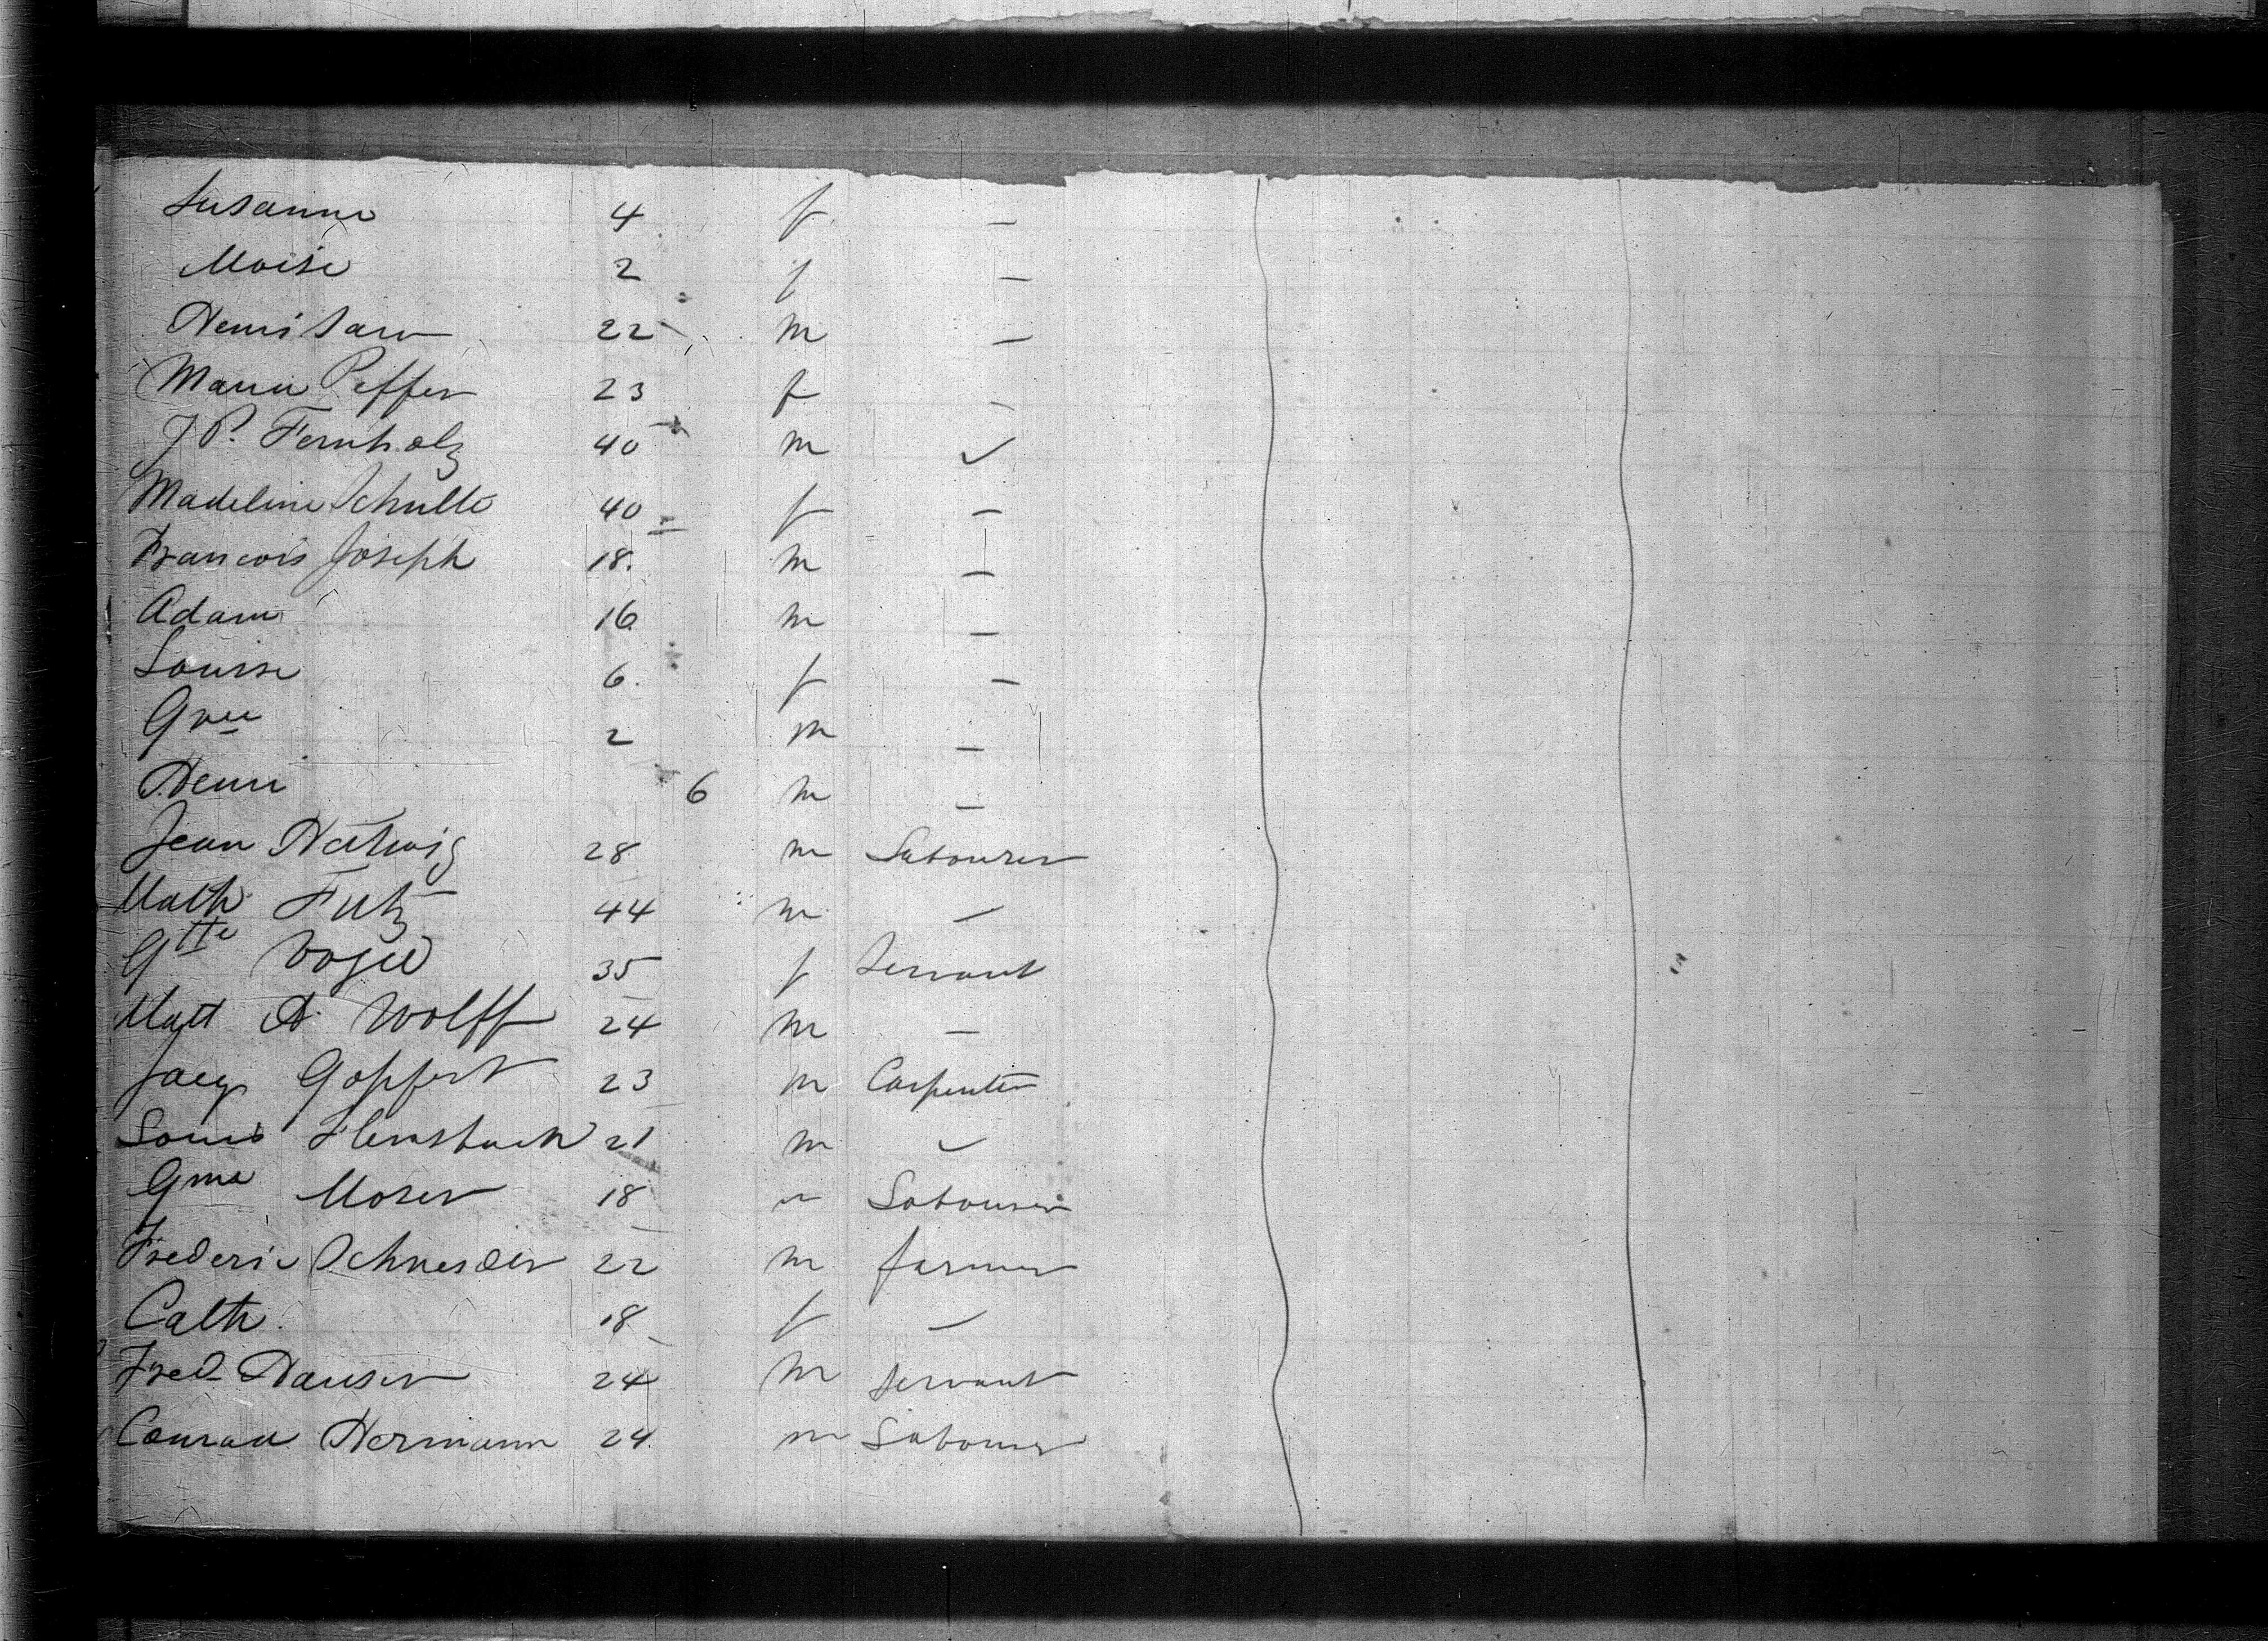 Susanne 4 f —
Moise 2 f —
Henri 22 m —
Marie Peffer 23 f —
J P. Fernholz 40 m ✓
Madeline Schulte 40 f —
Francois Joseph 18. m —
Adam 16 m —
Louise 6. f —
2 m —
Henri 6 m —
Jean Hertwig 28 m Labourer
Math 44 m —
Gtte Vogel 35 f Servant
Matt A. Wolff 24 m —
Jacq Goppert 23 m Carpenter
Louis 21 m ✓
Gme Moser 18 m Labourer
Frederic Schneider 22 m farmer
Cath. 18 f —
Fred Hauser 24 m servant
Conrad Hermann 24. m Labourer